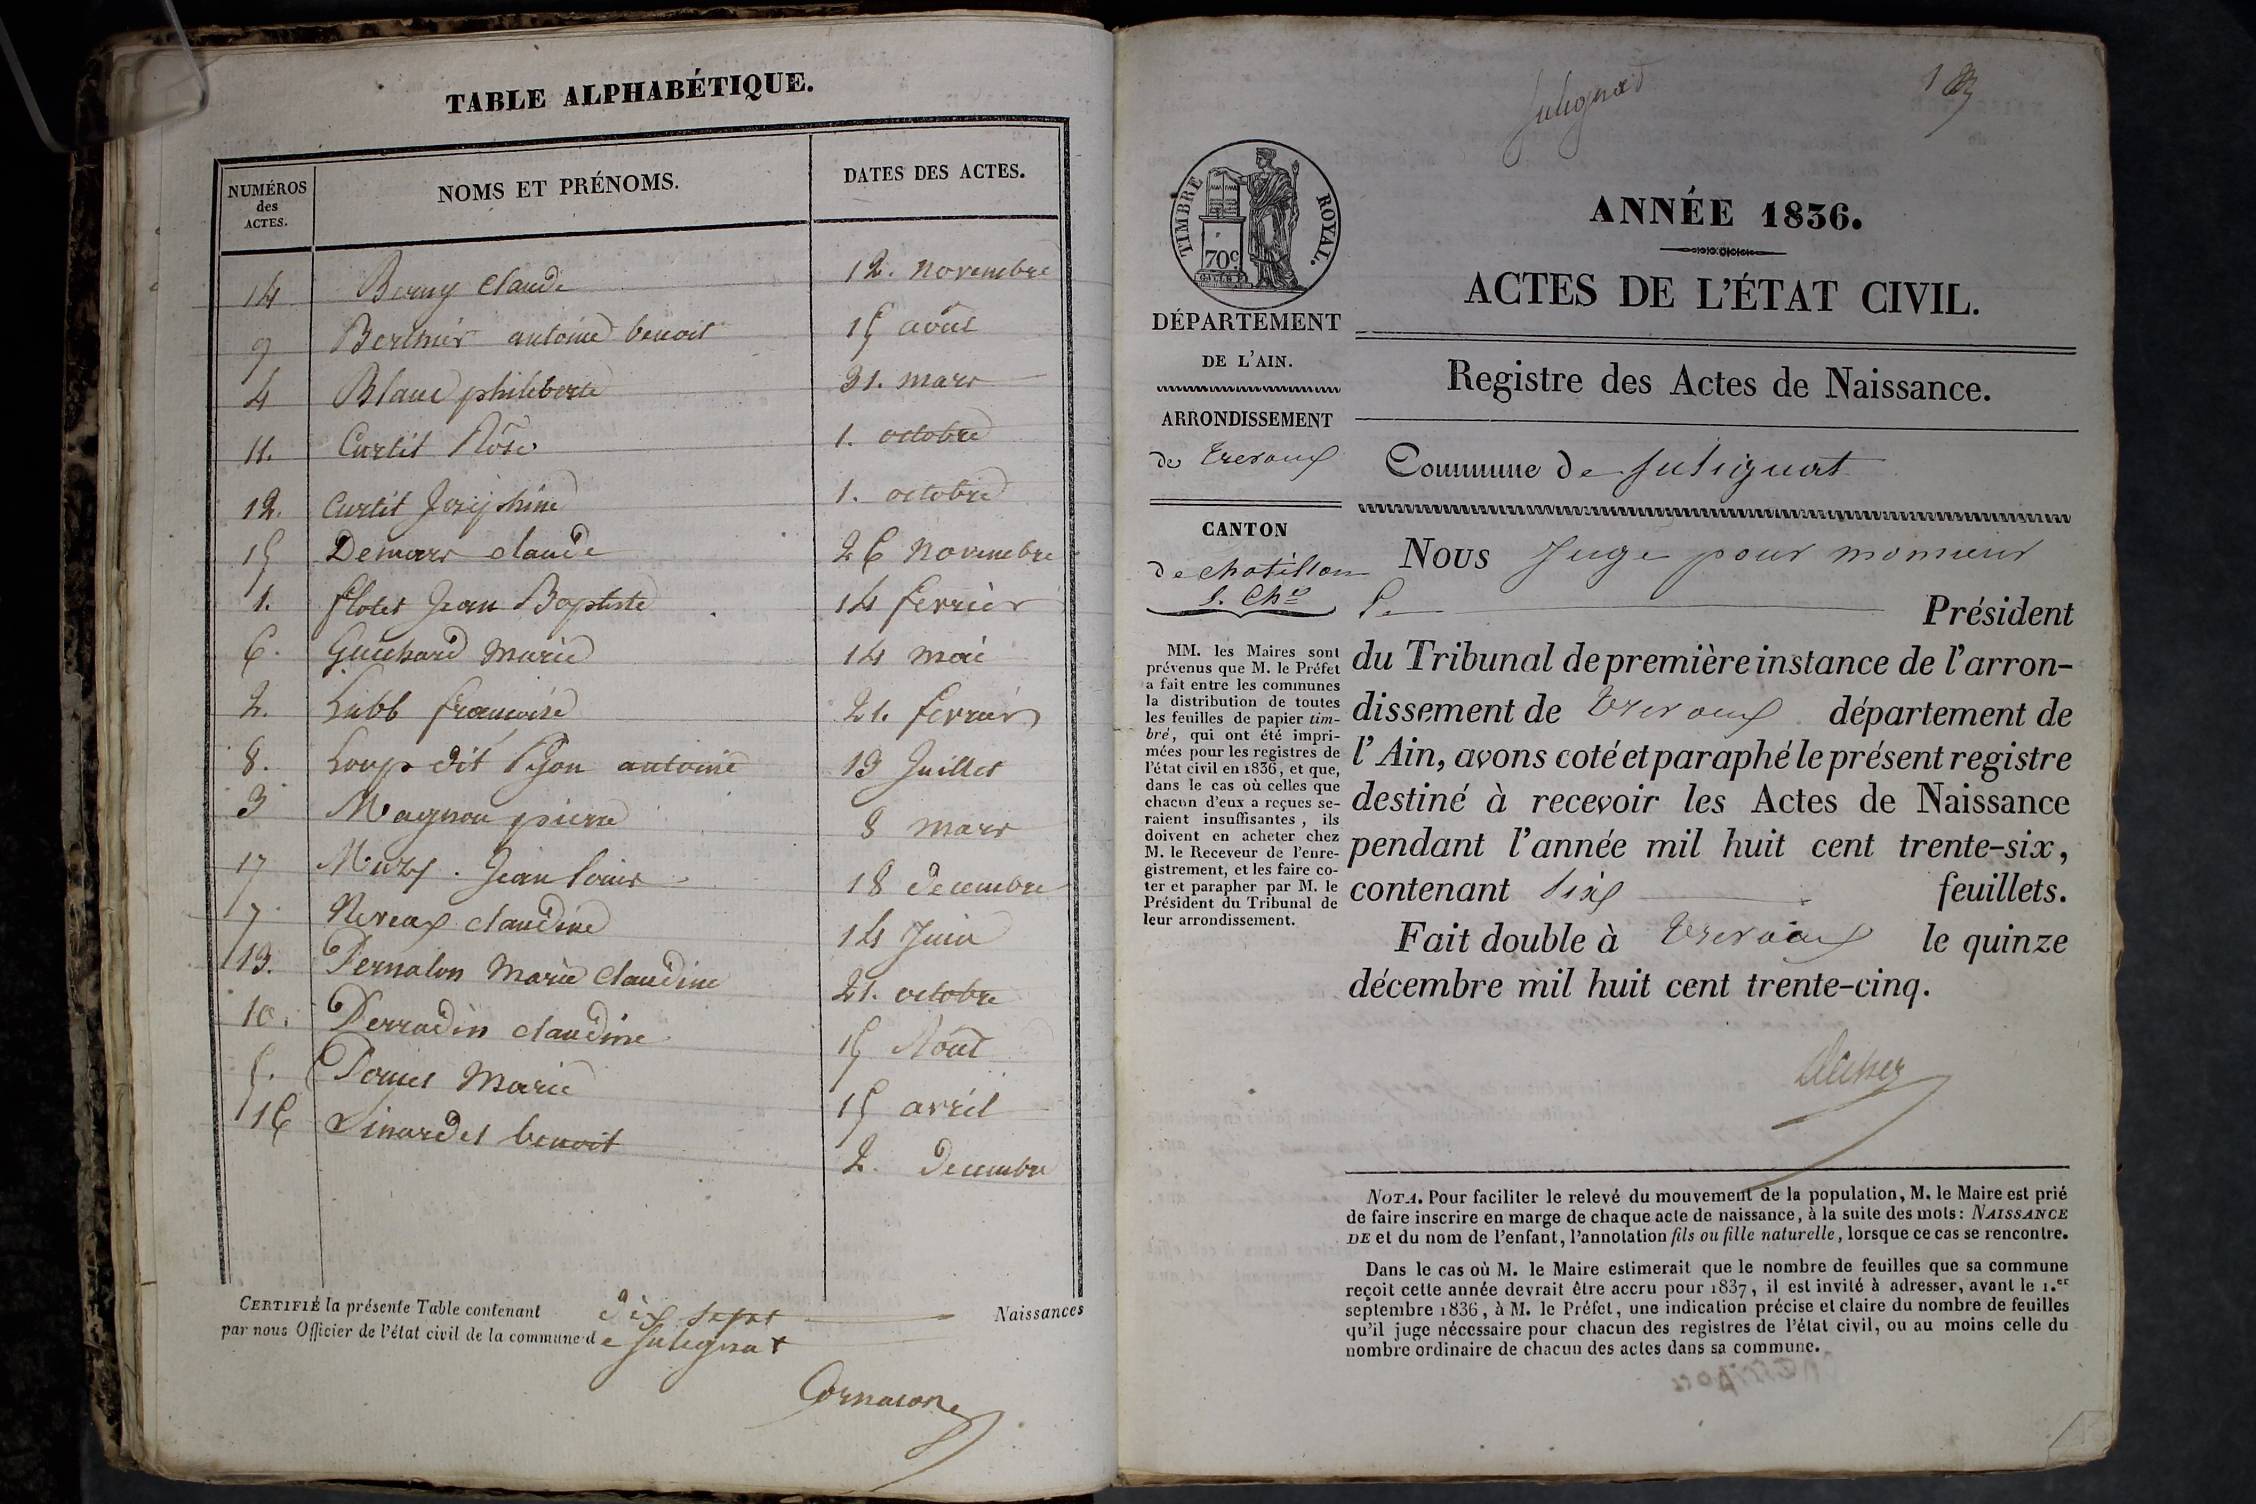 TABLE ALPHABÉTIQUE.
NUMÉROS des ACTES. NOMS ET PRÉNOMS. DATES DES ACTES.
14 Berny Claude 12. Novembre
9 Berthier antoine benoit 15 août
4 Blanc philiberte 31. mars
11. Curtit Rôse 1. octobre
12. Curtit Joséphine 1. octobre
15 Demars claude 26 Novembre
1. flotet Jean Baptiste 14 fevrier
6. Guichard Marie 14 mai
2. françoise 21. fevrier
8. Loup dit Pijon antoine 13 Juillet
3 Magnon pierre 8 mars
17 Jean louis 18 decembre
7. claudine 14 Juin
13. Pernalon Marie Claudine 21. octobre
10. Perradin claudine 15 Août
5. Marie 15 avril
16 benoit 2. Decembre
CERTIFIÉ la présente Table contenant dix sept Naissances
par nous Officier de l'état civil de la commune de Sulignat
Sulignat
1
TIMBRE ROYAL.
70c
ANNÉE 1836.
ACTES DE L'ÉTAT CIVIL.
DÉPARTEMENT
DE L'AIN.
Registre des Actes de Naissance.
ARRONDISSEMENT
de Trevoux
Commune de Sulignat
CANTON
de chatillon
s. Ch.e
MM. les Maires sont
prévenus que M. le Préfet
a fait entre les communes
la distribution de toutes
les feuilles de papier tim-
bré, qui ont été impri-
mées pour les registres de
l'état civil en 1836, et que,
dans le cas où celles que
chacun d'eux a reçues se-
raient insuffisantes, ils
doivent en acheter chez
M. le Receveur de l'enre-
gistrement, et les faire co-
ter et parapher par M. le
Président du Tribunal de
leur arrondissement.
Nous Juge pour monsieur
le Président
du Tribunal de première instance de l'arron-
dissement de Trevoux département de
l'Ain, avons coté et paraphé le présent registre
destiné à recevoir les Actes de Naissance
pendant l'année mil huit cent trente-six,
contenant six feuillets.
Fait double à Trevoux le quinze
décembre mil huit cent trente-cinq.
NOTA. Pour faciliter le relevé du mouvement de la population, M. le Maire est prié
de faire inscrire en marge de chaque acte de naissance, à la suite des mots: NAISSANCE
DE et du nom de l'enfant, l'annotation fils ou fille naturelle, lorsque ce cas se rencontre.
Dans le cas où M. le Maire estimerait que le nombre de feuilles que sa commune
reçoit cette année devrait être accru pour 1837, il est invité à adresser, avant le 1.er
septembre 1836, à M. le Préfet, une indication précise et claire du nombre de feuilles
qu'il juge nécessaire pour chacun des registres de l'état civil, ou au moins celle du
nombre ordinaire de chacun des actes dans sa commune.